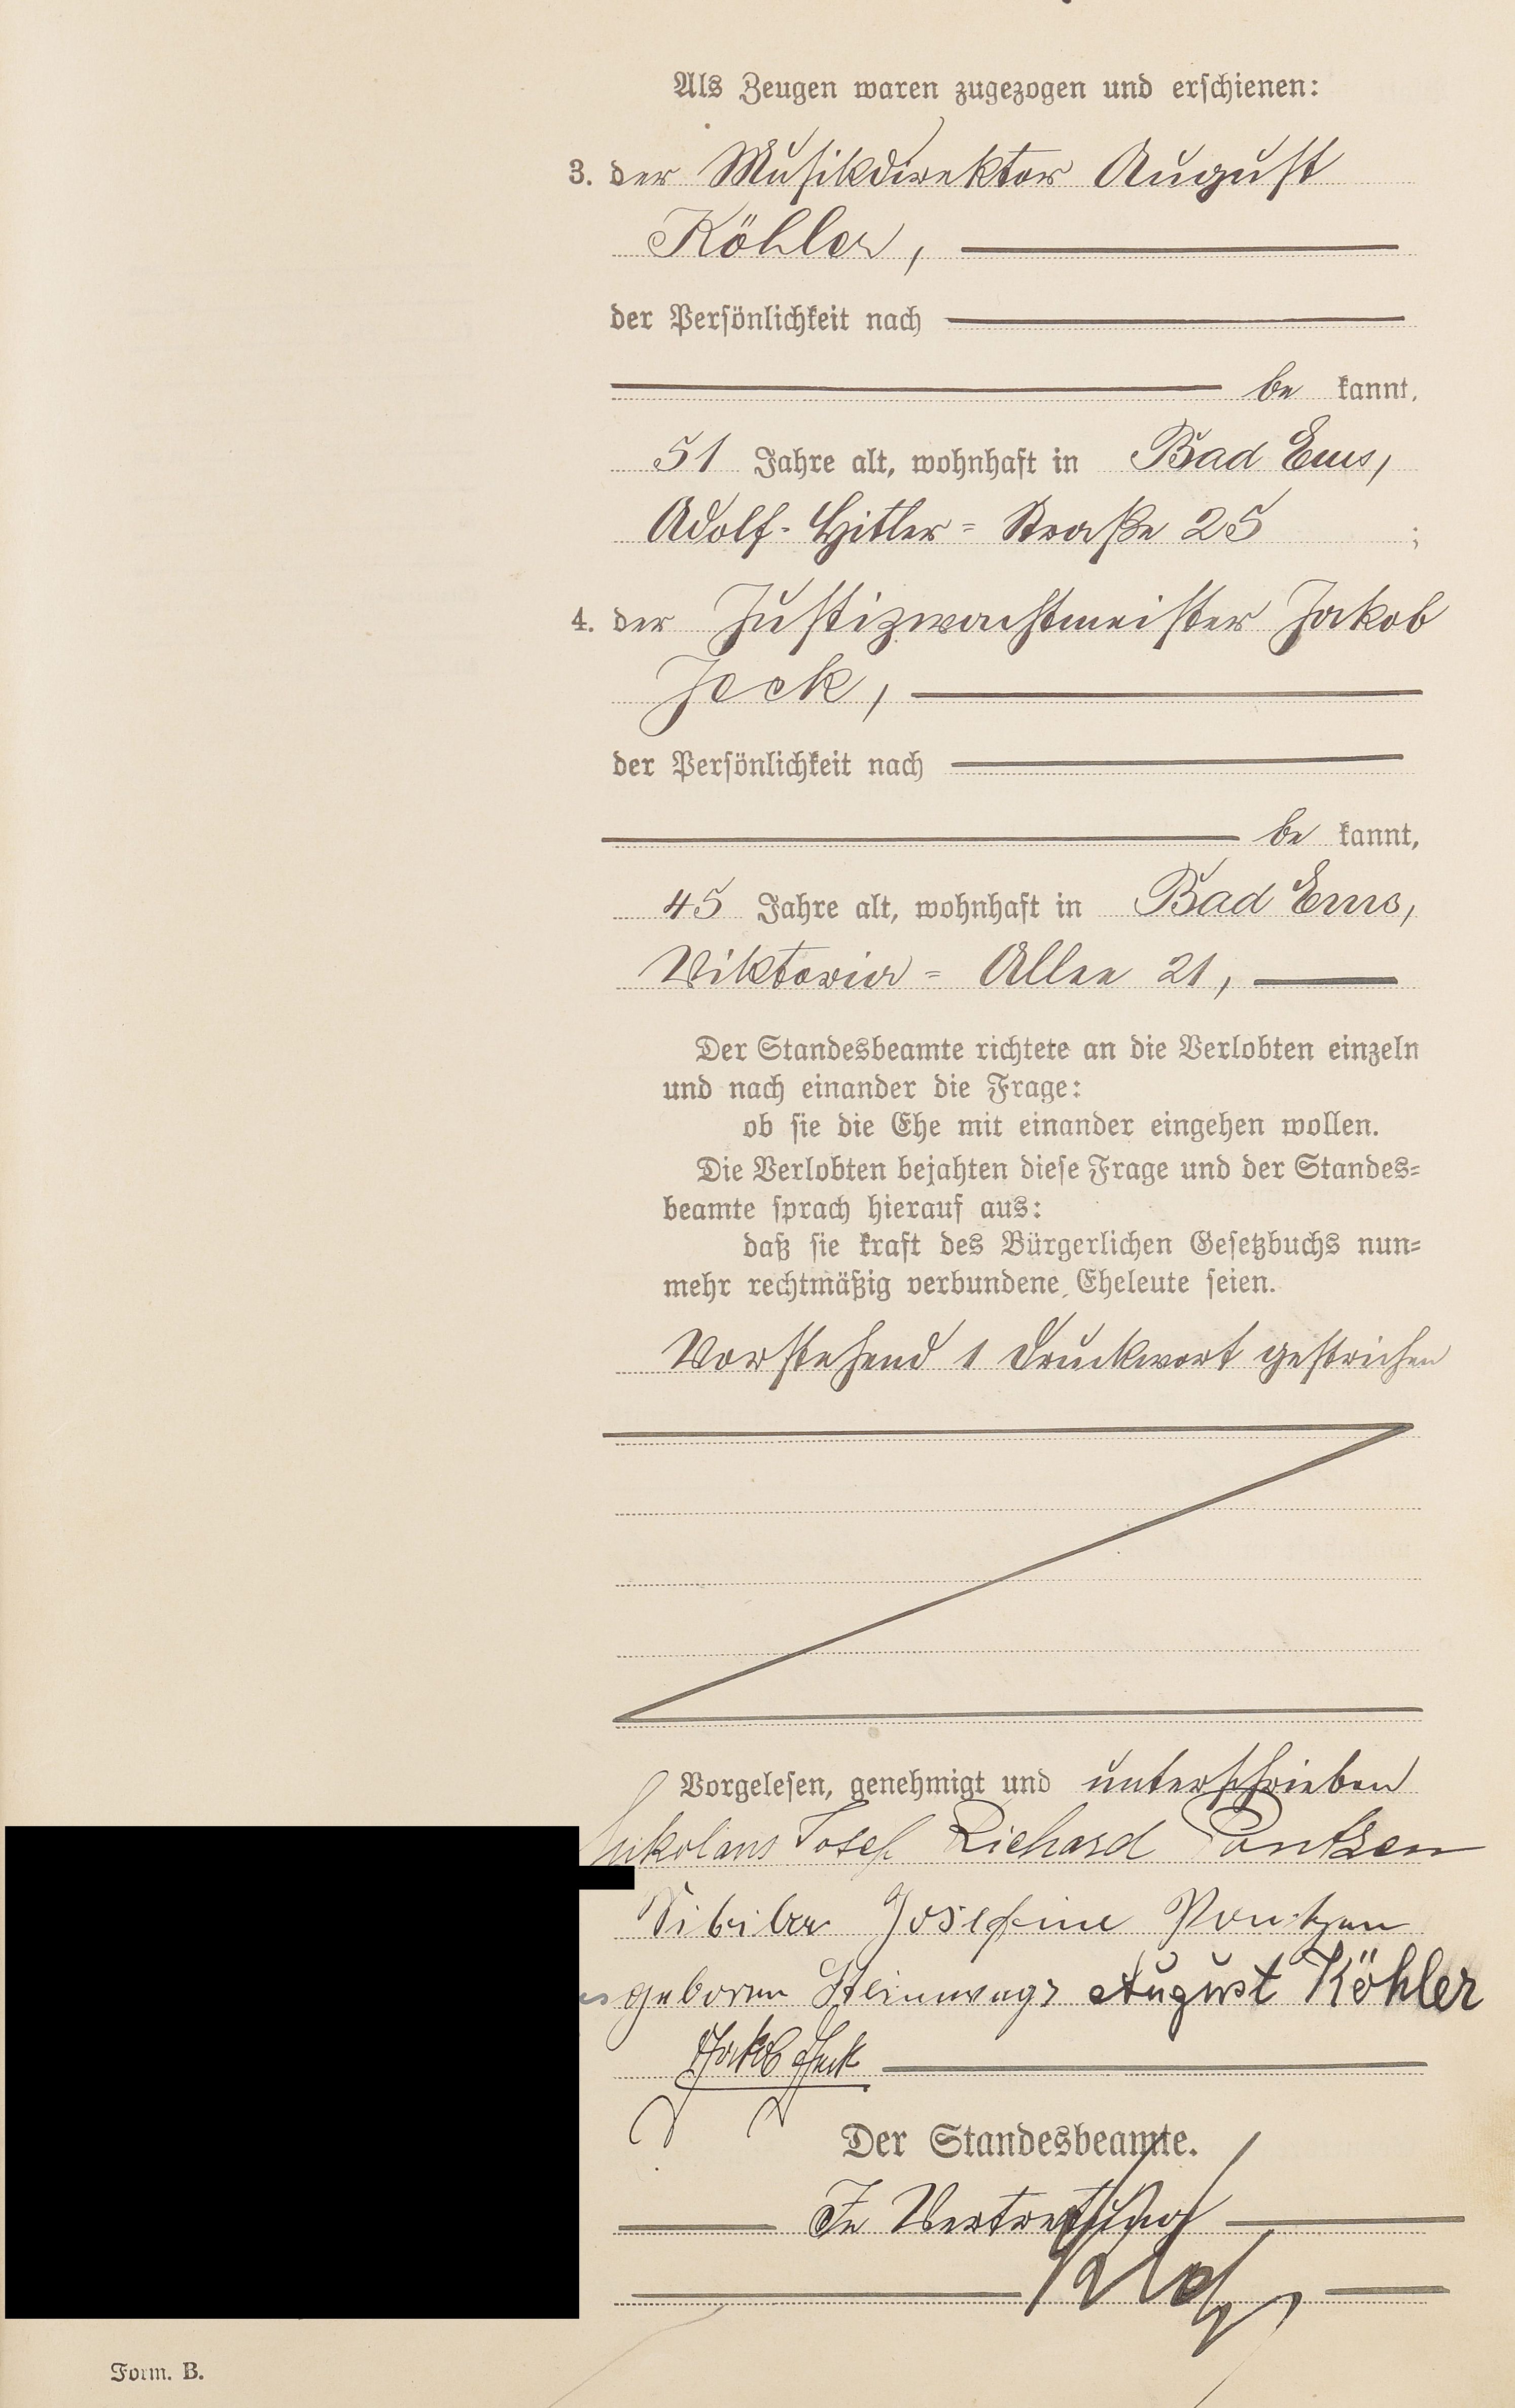 Als Zeugen waren zugezogen und erschienen:
3. der Musikdirektor August
Köhler,
der Persönlichkeit nach
be kannt,
51 Jahre alt, wohnhaft in Bad Ems,
Adolf-Hitler=Straße 25 ;
4. der Justizwachtmeister Jakob
Jeck,
der Persönlichkeit nach
be kannt,
45 Jahre alt, wohnhaft in Bad Ems,
Viktoria=Allee 21,
Der Standesbeamte richtete an die Verlobten einzeln
und nach einander die Frage:
ob sie die Ehe mit einander eingehen wollen.
Die Verlobten bejahten diese Frage und der Standes=
beamte sprach hierauf aus:
daß sie kraft des Bürgerlichen Gesetzbuchs nun=
mehr rechtmäßig verbundene Eheleute seien.
Vorstehend 1 Druckwort gestrichen
Vorgelesen, genehmigt und unterschrieben
Nikolaus Josef Richard Pontzen
Sibilla Josefine Pontzen
geborene August Köhler
Jakob Jeck
Der Standesbeamte.
In Vertretung
Form. B.